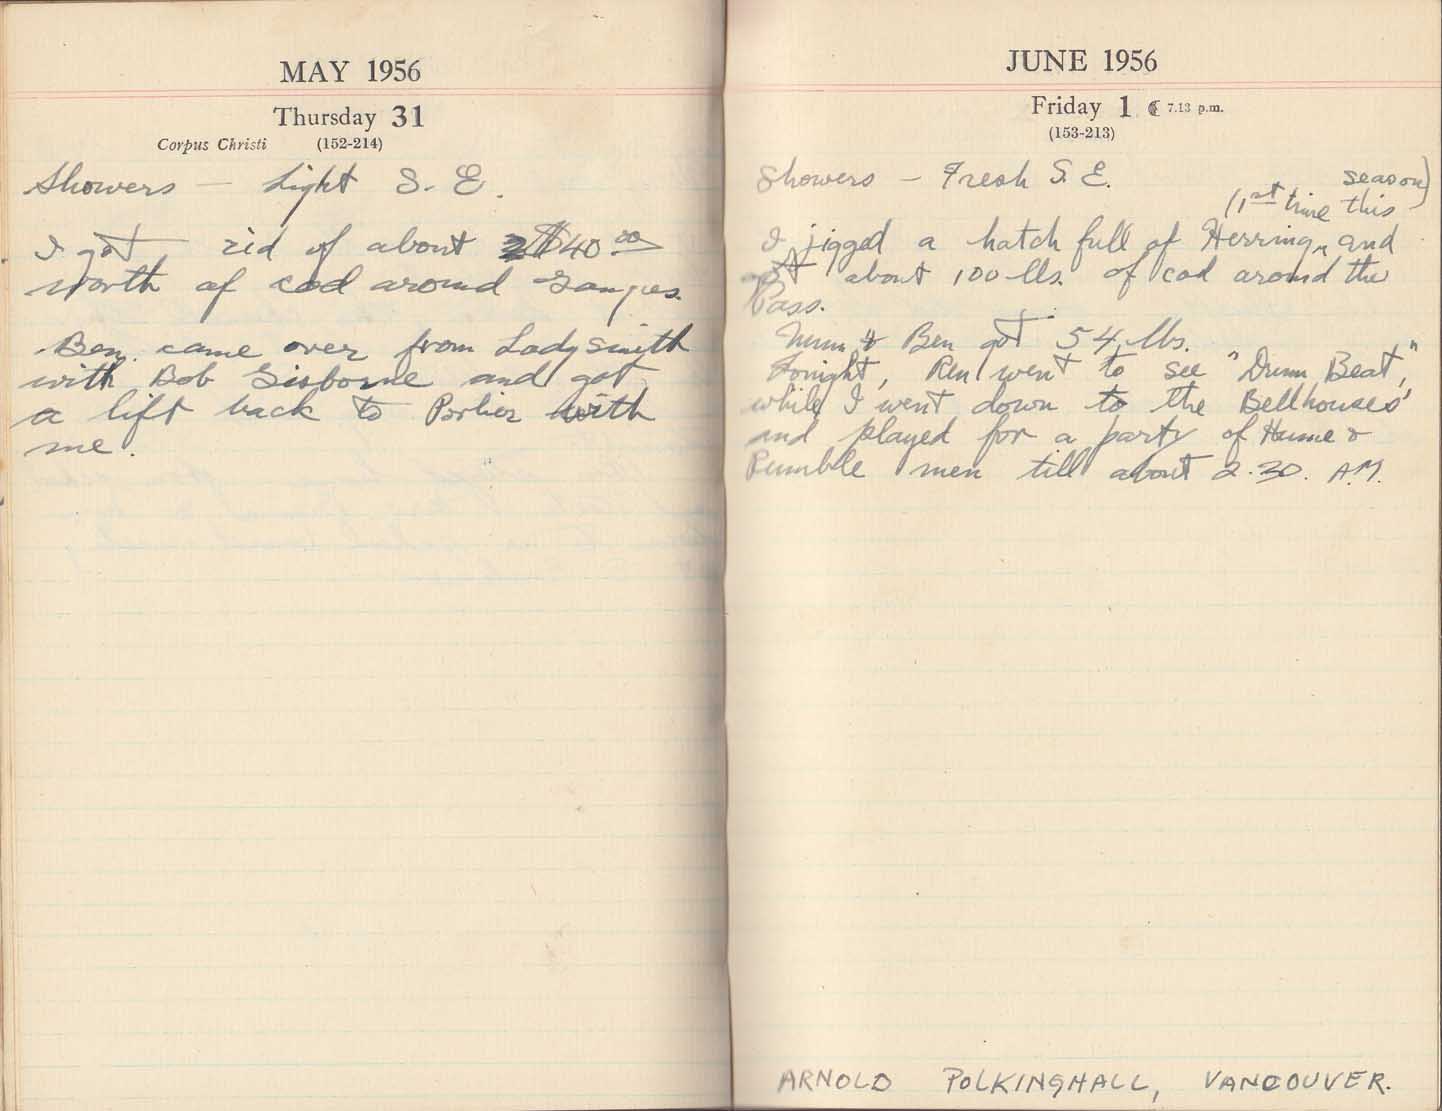 MAY 1956
Thursday 31
Corpus Christi (152-214)
Showers — Light S. E.
I got rid of about $40 00
worth of cod around Ganges.
Ben came over from Ladysmith
with Bob Gisborne and got
a lift back to Porlier with
me.
JUNE 1956
Friday 1 ☾ 7.13 p.m.
(153-213)
Showers — Fresh S. E.
season)
(1st time this
I jigged a hatch full of Herring, and
got about 100 lbs. of cod around the
Pass.
Mum & Ben got 54 lbs.
Tonight, Ben went to see "Drum Beat",
while I went down to the Bellhouses'
and played for a party of Hume &
Rumble men till about 2.30. A.M.
ARNOLD POLKINGHALL, VANCOUVER.